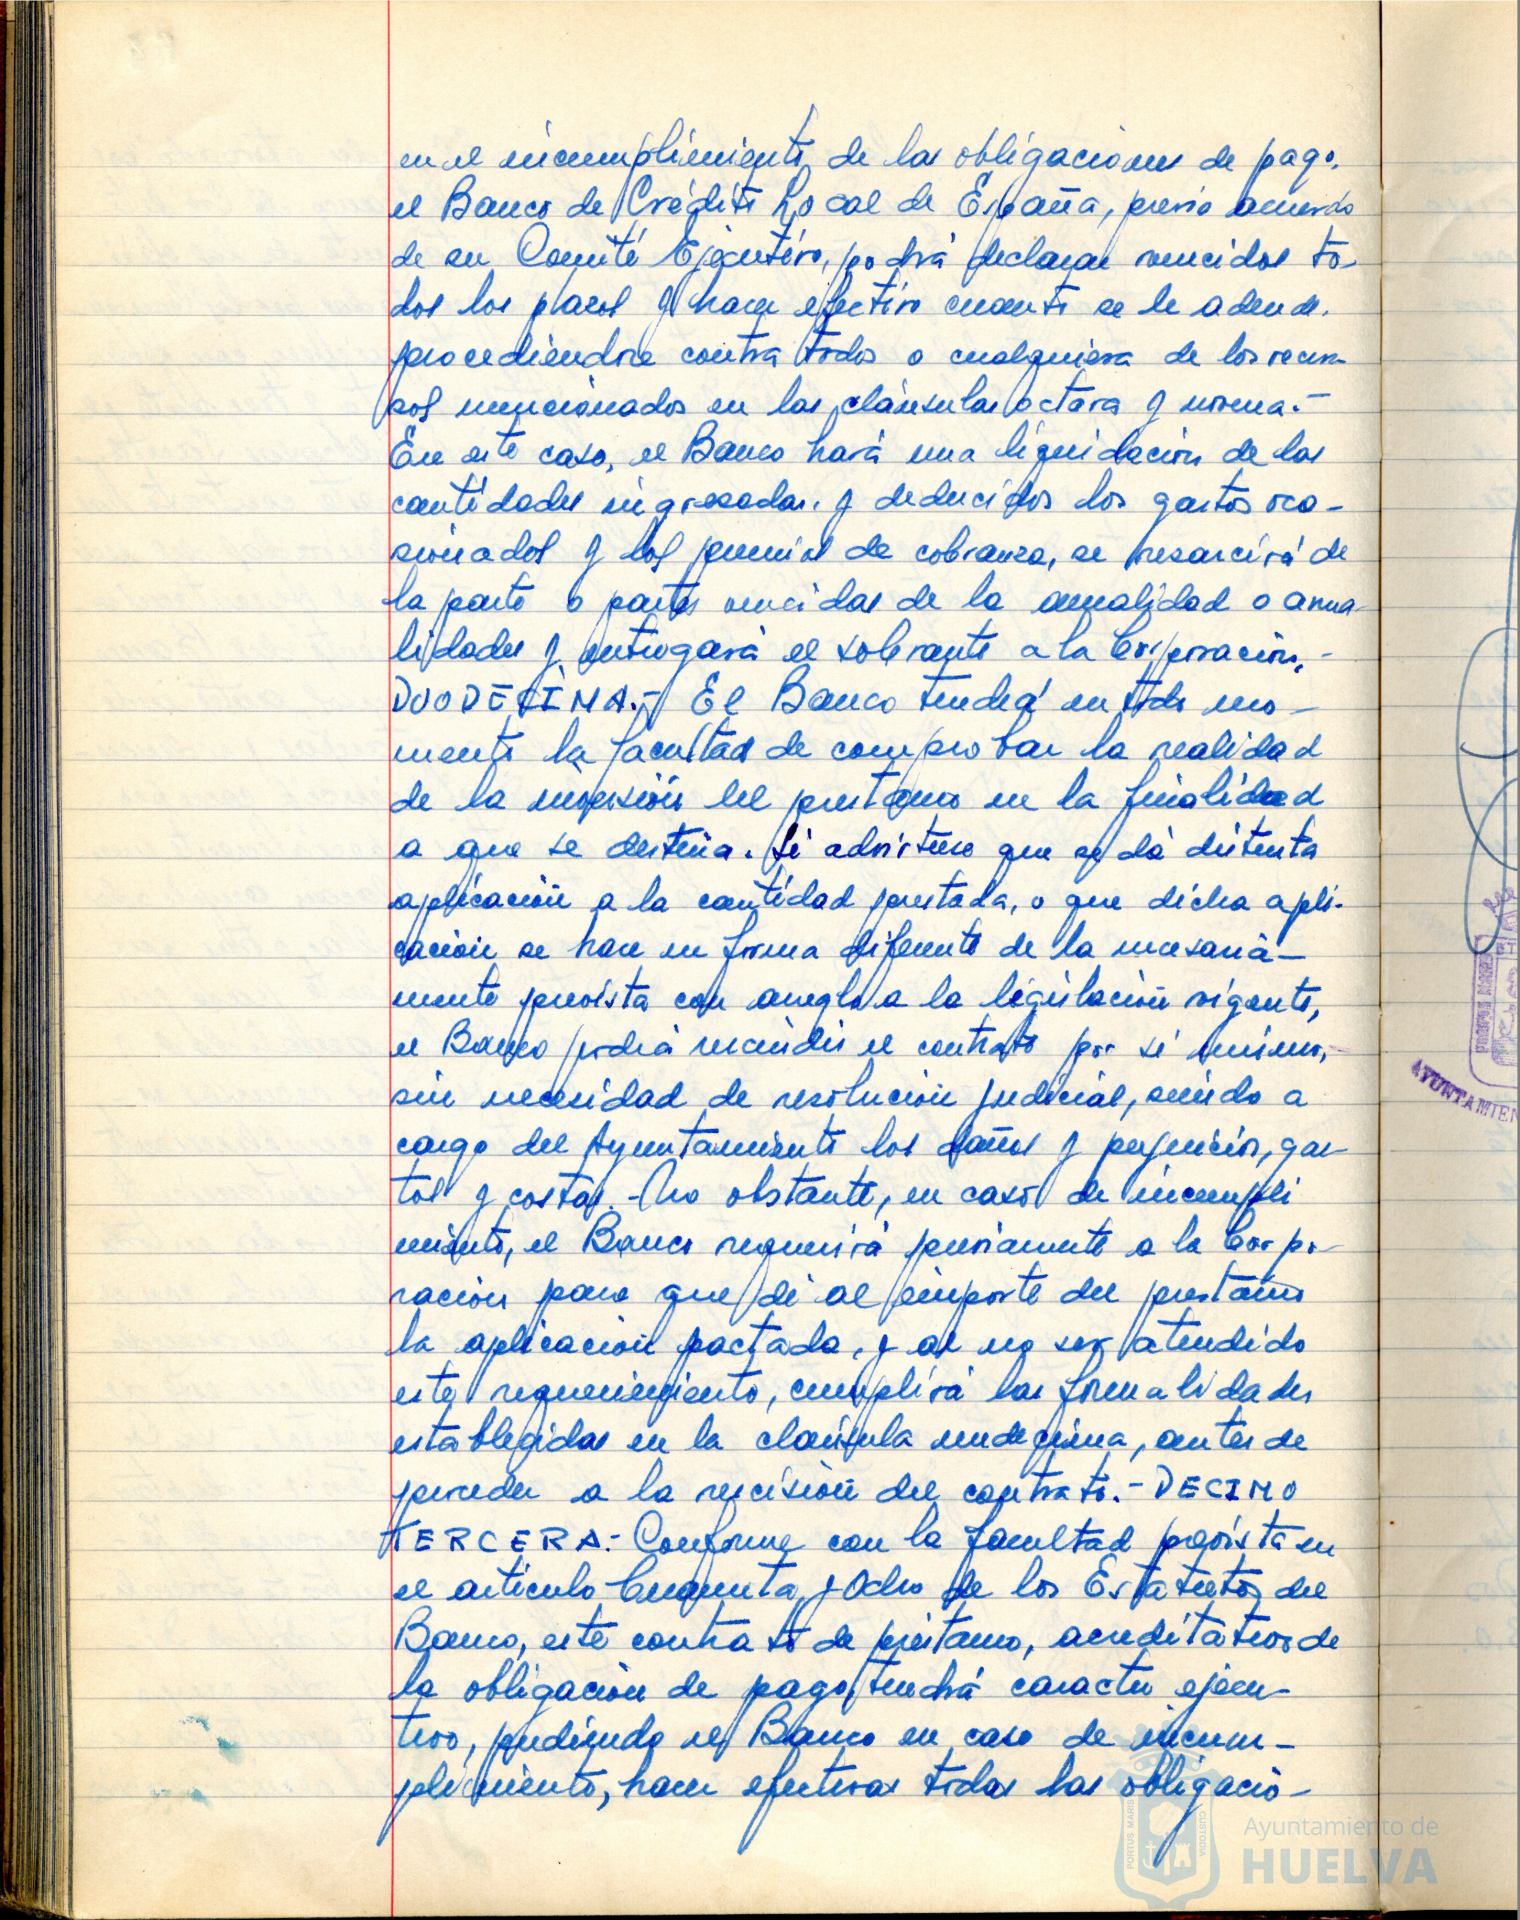 en el incumplimiento de las obligaciones de pago,
el Banco de Crédito Local de España, previo acuerdo
de su Comité Ejecutivo, podrá declarar vencidos to-
dos los plazos y hacer efectivo cuanto se le adeude,
procediendose contra todos o cualquiera de los recur-
sos mencionados en las cláusulas octava y novena.-
En este caso, el Banco hará una liquidación de las
cantidades ingresadas, y deducidos los gastos oca-
sionados y los premios de cobranza, se resarcirá de
la parte o partes vencidas de la anualidad o anua-
lidades y entregará el sobrante a la Corporación.-
DUODECIMA.- El Banco tendrá en todo mo-
mento la facultad de comprobar la realidad
de la inversión del prestamo en la finalidad
a que se destina. Si advirtiese que se dá distinta
aplicación a la cantidad prestada, o que dicha apli-
cación se hace en forma diferente de la necesaria-
mente prevista con arreglo a la legislación vigente,
el Banco podrá rescindir el contrato por sí mismo,
sin necesidad de resolución judicial, siendo a
cargo del Ayuntamiento los daños y perjuicios, gas-
tos y costas.- No obstante, en caso de incumpli
miento, el Banco requerirá previamente a la Corpo-
ración para que dé al importe del prestamo
la aplicación pactada, y al no ser atendido
este requerimiento, cumplirá las formalidades
establecidas en la cláusula undecima, antes de
proceder a la rescisión del contrato.- DECIMO
TERCERA.- Conforme con la facultad prevista en
el artículo Cincuenta y Ocho de los Estatutos del
Banco, este contrato de préstamo, acreditativo de
la obligación de pago, tendrá caracter ejecu-
tivo, pudiendo el Banco en caso de incum-
plimiento, hacer efectivas todas las obligacio-
AYUNTAMIEN
PORTUS MARIS
CUSTODIA
Ayuntamiento de
HUELVA